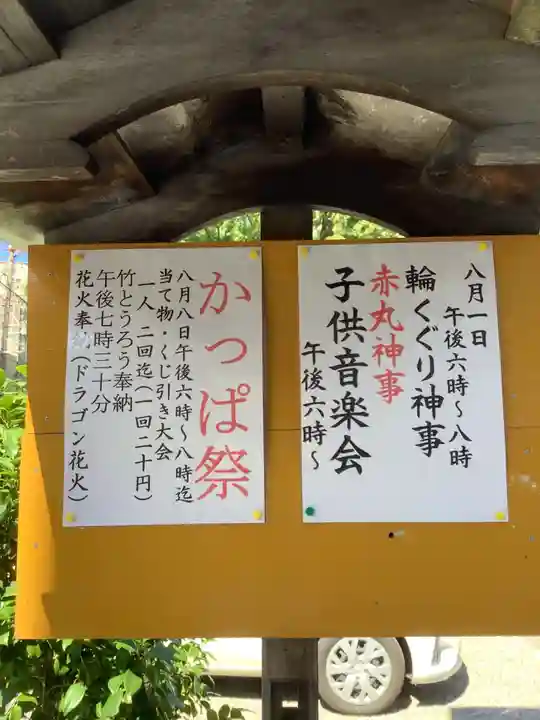 八月一日
午後六時～八時
輪くぐり神事
赤丸神事
子供音楽会
午後六時～
かっぱ祭
八月八日午後六時～八時迄
当て物・くじ引き大会
一人 二回迄（一回二十円）
竹とうろう奉納
午後七時三十分
花火奉納（ドラゴン花火）